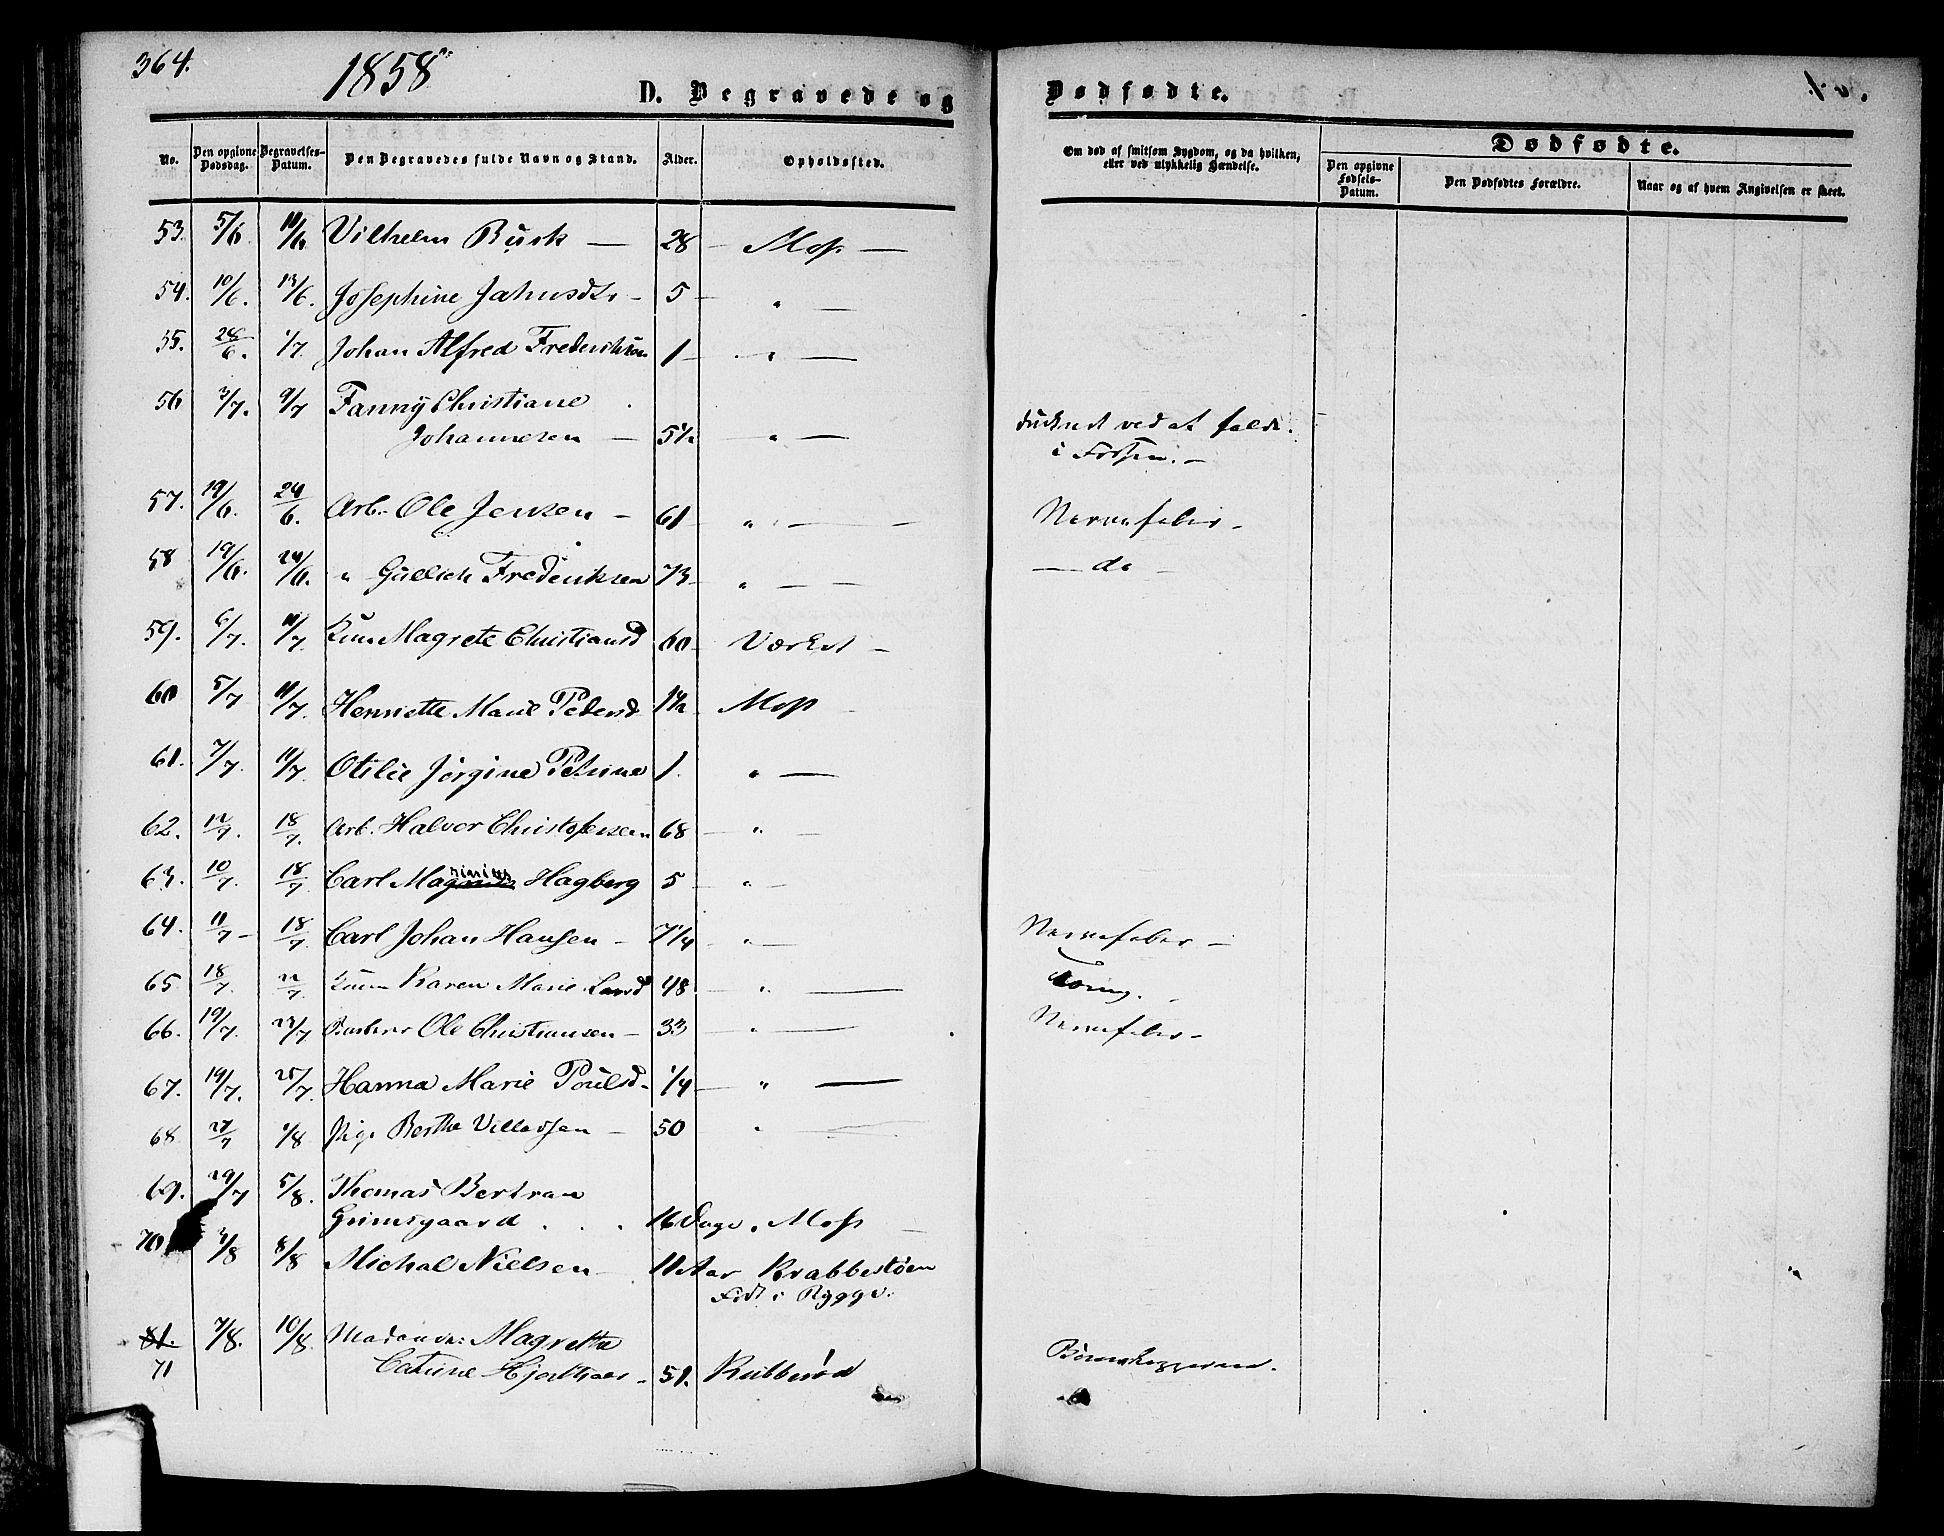 364.
1858
D. Begravede og Dødfødte.
No. Den opgivne Dødsdag. Begravelses-Datum. Den Begravedes fulde Navn og Stand. Alder. Opholdssted. Om død af smitsom Sygdom, og da hvilken, eller ved ulykkelig Hændelse. Dødfødte.
Den opgivne Fødsels-Datum. Den Dødfødtes Forældre. Naar og af hvem Angivelsen er skeet.
53. 5/6 11/6. Vilhelm Busk — 28 — Moss —
54. 10/6. 13/6. Josephine Jahnsdtr — 5 — " —
55. 28/6. 1/7. Johan Alfred Frederiksen 1 — " —
56 3/7. 9/7 Fanny Christiane
Johannesen — 5½ — " — druknet ved at falde
i Fossen. —
57. 19/6. 24/6. Arb. Ole Jensen — 61 — " — Nervefeber —
58 19/6. 24/6. " Gullich Frederiksen 73 — " — — do —
59. 6/7. 11/7. Magrete Christiansd 60 — Værket —
60 5/7 11/7. Henriette Marie Pedersd 1½ — Moss
61. 7/7. 11/7. Otilie Jørgine Petrine 1. " —
62. 12/7. 18/7. Arb. Halvor Christofersen 68 — " —
63. 10/7. 18/7 Carl Hagberg 5 — " —
64. 11/7 — 18/7. Carl Johan Hansen — 7¼ — " — Nervefeber —
65 18/7. 22/7 Karen Marie Larsd 48 — " — Tæring.
66. 19/7. 23/7 Ole Christiansen — 33 — " — Nervefeber —
67. 19/7. 25/7 Hanna Marie Poulsd — ¼ — " —
68. 27/7 1/8 Pige Berthe Villadsen — 50 " —
69. 29/7 5/8. Thomas Bertran
Grimsgaard . . . 16 Dage. Moss —
70 3/8 8/8 Michal Nielsen — 11 Aar Krabbestøen
Født i Rygge.
81. 7/8. 10/8. Madame Magrethe
71 Catrine — 51. Rubberød